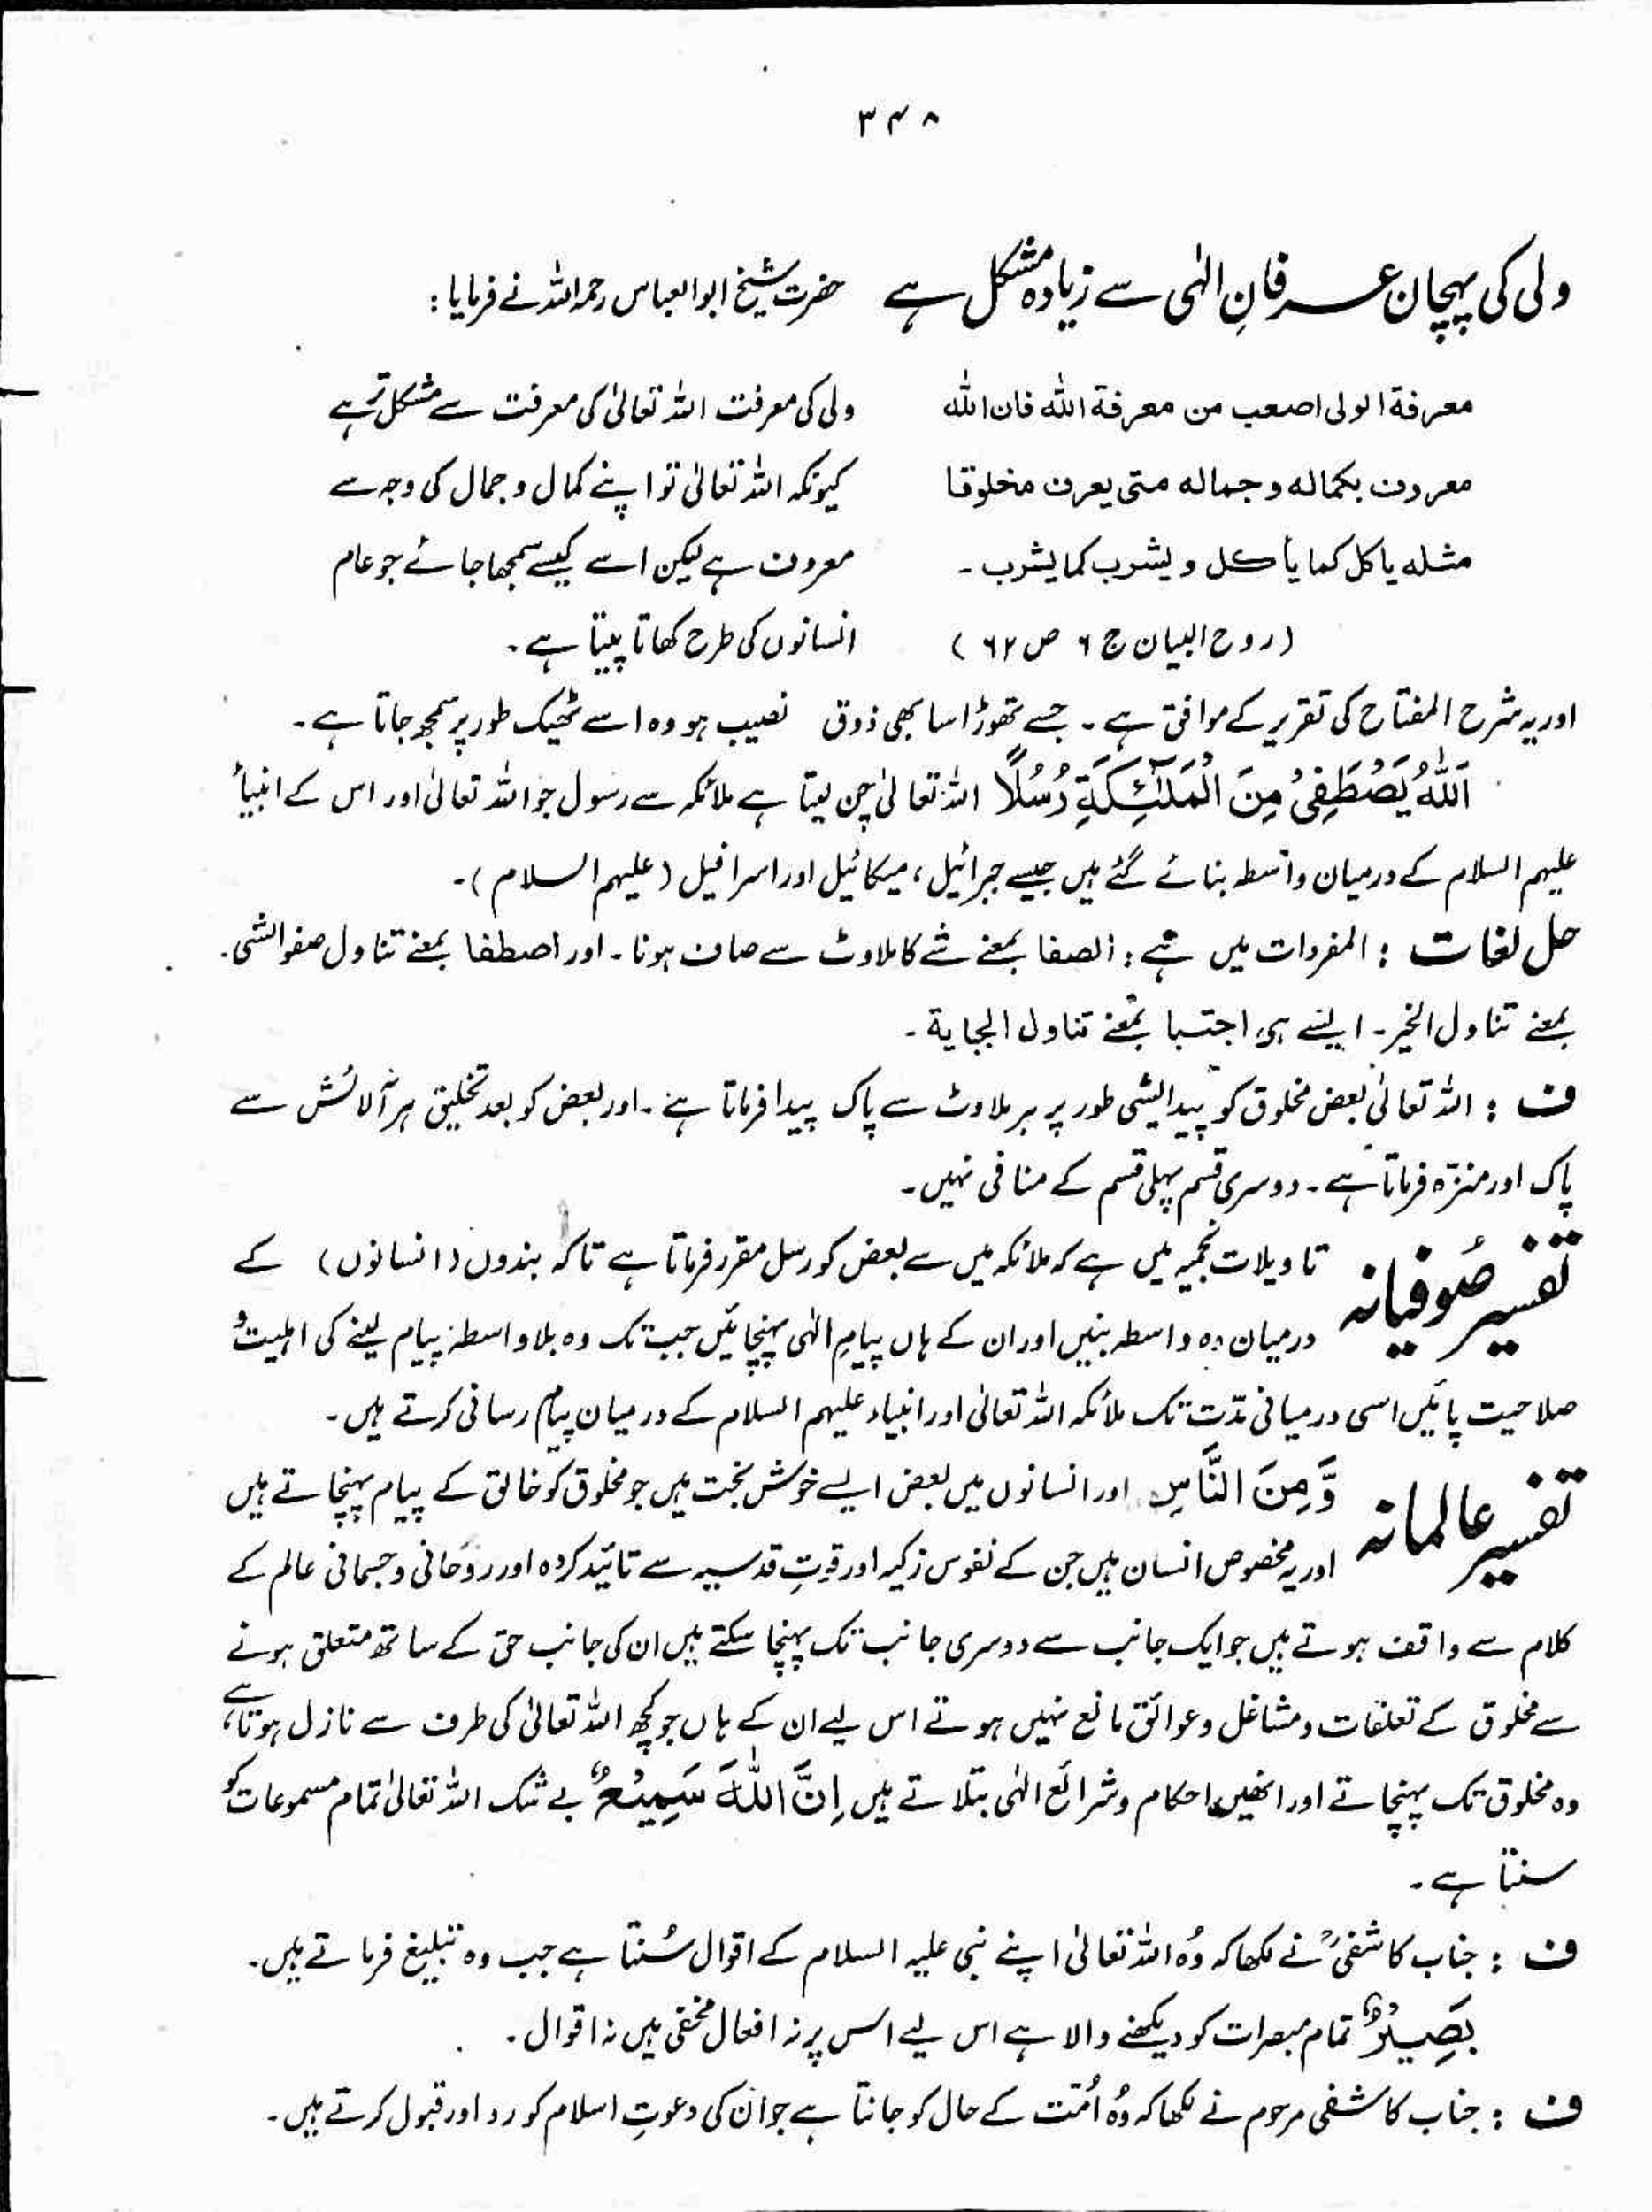 ۳۴۸
ولی کی پہچان عرفانِ الٰہی سے زیادہ مشکل ہے حضرت شیخ ابوالعباس رحمہ اللہ نے فرمایا :
معرفة الولی اصعب من معرفة اللہ فان اللہ
معروف بکمالہ وجمالہ متی یعرف مخلوقا
مثلہ یاکل کما یأکل و یشرب کما یشرب ۔
(روح البیان ج ۶ ص ۶۲)
ولی کی معرفت اللہ تعالیٰ کی معرفت سے مشکل تر ہے
کیونکہ اللہ تعالیٰ تو اپنے کمال و جمال کی وجہ سے
معروف ہے لیکن اسے کیسے سمجھا جائے جو عام
انسانوں کی طرح کھاتا پیتا ہے ۔
اور یہ شرح المفتاح کی تقریر کے موافق ہے ۔ جسے تھوڑا سا بھی ذوق نصیب ہو وہ اسے ٹھیک طور پر سمجھ جاتا ہے ۔
اَللّٰهُ یَصْطَفِیْ مِنَ الْمَلٰٓئِكَةِ رُسُلًا اللہ تعالیٰ چن لیتا ہے ملائکہ سے رسول جو اللہ تعالیٰ اور اس کے انبیاء
علیہم السلام کے درمیان واسطہ بنائے گئے ہیں جیسے جبرائیل ، میکائیل اور اسرافیل (علیہم السلام) ۔
حل لغات : المفردات میں ہے : الصفا بمعنے شے کا ملاوٹ سے صاف ہونا ۔ اور اصطفا بمعنے تناول صفو الشی ۔
بمعنے تناول الخیر ۔ ایسے ہی اجتبا بمعنے تناول الجبایة ۔
ف : اللہ تعالیٰ بعض مخلوق کو پیدایشی طور پر ہر ملاوٹ سے پاک پیدا فرماتا ہے ۔ اور بعض کو بعد تخلیق ہر آلائش سے
پاک اور منزّہ فرماتا ہے ۔ دوسری قسم پہلی قسم کے منافی نہیں ۔
تفسیر صُوفیانہ تاویلات نجمیہ میں ہے کہ ملائکہ میں سے بعض کو رسل مقرر فرماتا ہے تاکہ بندوں (انسانوں) کے
درمیان وہ واسطہ بنیں اور ان کے ہاں پیامِ الٰہی پہنچائیں جب تک وہ بلاواسطہ پیام لینے کی اہلیت و
صلاحیت پائیں اسی درمیانی مدّت تک ملائکہ اللہ تعالیٰ اور انبیاء علیہم السلام کے درمیان پیام رسانی کرتے ہیں ۔
تفسیر عالمانہ وَّمِنَ النَّاسِ اور انسانوں میں بعض ایسے خوش بخت ہیں جو مخلوق کو خالق کے پیام پہنچاتے ہیں
اور یہ مخصوص انسان ہیں جن کے نفوس زکیہ اور قوتِ قدسیہ سے تائید کردہ اور روحانی و جسمانی عالم کے
کلام سے واقف ہوتے ہیں جو ایک جانب سے دوسری جانب تک پہنچا سکتے ہیں ان کی جانب حق کے ساتھ متعلق ہونے
سے مخلوق کے تعلقات و مشاغل و عوائق مانع نہیں ہوتے اس لیے ان کے ہاں جو کچھ اللہ تعالیٰ کی طرف سے نازل ہوتا ہے ،
وہ مخلوق تک پہنچاتے اور انھیں احکام و شرائع الٰہی بتلاتے ہیں اِنَّ اللّٰهَ سَمِیْعٌۢ بے شک اللہ تعالیٰ تمام مسموعات کو
سنتا ہے ۔
ف : جناب کاشفیؒ نے لکھا کہ وُہ اللہ تعالیٰ اپنے نبی علیہ السلام کے اقوال سُنتا ہے جب وہ تبلیغ فرماتے ہیں ۔
بَصِیْرٌ تمام مبصرات کو دیکھنے والا ہے اس لیے اس پر نہ افعال مخفی ہیں نہ اقوال ۔
ف : جناب کاشفی مرحوم نے لکھا کہ وُہ اُمّت کے حال کو جانتا ہے جو ان کی دعوتِ اسلام کو رد اور قبول کرتے ہیں ۔